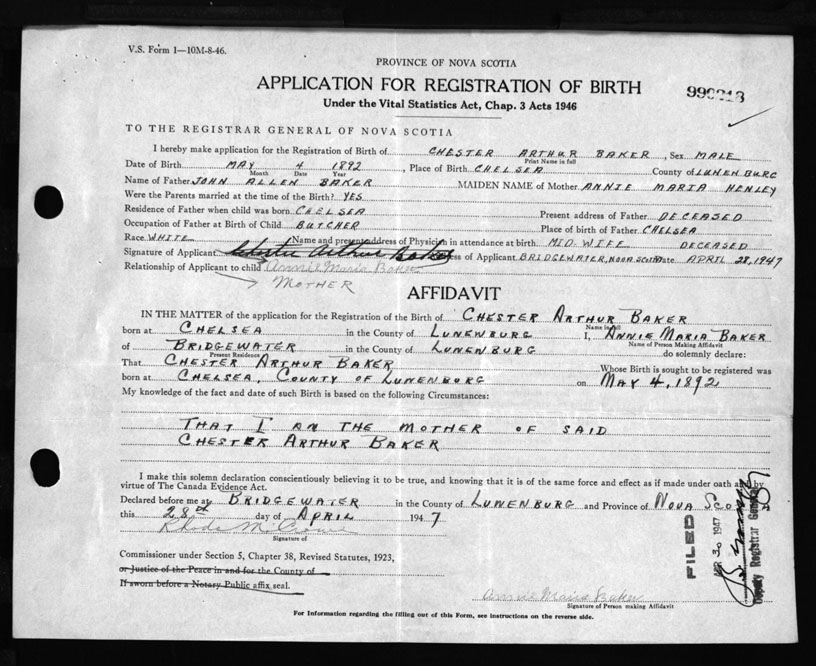 V.S. Form 1—10M-8-46.
PROVINCE OF NOVA SCOTIA
APPLICATION FOR REGISTRATION OF BIRTH
Under the Vital Statistics Act, Chap. 3 Acts 1946
TO THE REGISTRAR GENERAL OF NOVA SCOTIA
I hereby make application for the Registration of Birth of CHESTER ARTHUR BAKER, Sex MALE
Print Name in full
Date of Birth MAY 4 1892, Place of Birth CHELSEA County of LUNENBURG
Month Date Year
Name of Father JOHN ALLEN BAKER MAIDEN NAME of Mother ANNIE MARIA HENLEY
Were the Parents married at the time of the Birth? YES
Residence of Father when child was born CHELSEA Present address of Father DECEASED
Occupation of Father at Birth of Child BUTCHER Place of birth of Father CHELSEA
Race WHITE Name and present address of Physician in attendance at birth MID WIFE DECEASED
Signature of Applicant Chester Arthur Baker of Applicant BRIDGEWATER, NOVA SCOTIA Date APRIL 28, 1947
Relationship of Applicant to child Annie Maria Baker
MOTHER
AFFIDAVIT
IN THE MATTER of the application for the Registration of the Birth of CHESTER ARTHUR BAKER
Name in full
born at CHELSEA in the County of LUNENBURG I, ANNIE MARIA BAKER
Name of Person Making Affidavit
of BRIDGEWATER in the County of LUNENBURG do solemnly declare:
Present Residence
That CHESTER ARTHUR BAKER Whose Birth is sought to be registered was
born at CHELSEA, COUNTY OF LUNENBURG on MAY 4, 1892
My knowledge of the fact and date of such Birth is based on the following Circumstances:
THAT I AM THE MOTHER OF SAID
CHESTER ARTHUR BAKER
I make this solemn declaration conscientiously believing it to be true, and knowing that it is of the same force and effect as if made under oath and by
virtue of The Canada Evidence Act.
Declared before me at BRIDGEWATER in the County of LUNENBURG and Province of NOVA SCO
this 28th day of APRIL 1947
Signature of
Commissioner under Section 5, Chapter 38, Revised Statutes, 1923,
or Justice of the Peace in and for the County of
If sworn before a Notary Public affix seal.
Annie Maria Baker
Signature of Person making Affidavit
For Information regarding the filling out of this Form, see instructions on the reverse side.
FILED
APR 30 1947
Deputy Registrar General